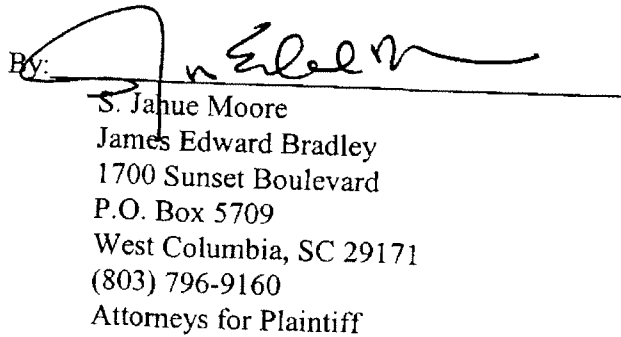 By:
S. Jahue Moore
James Edward Bradley
1700 Sunset Boulevard
P.O. Box 5709
West Columbia, SC 29171
(803) 796-9160
Attorneys for Plaintiff